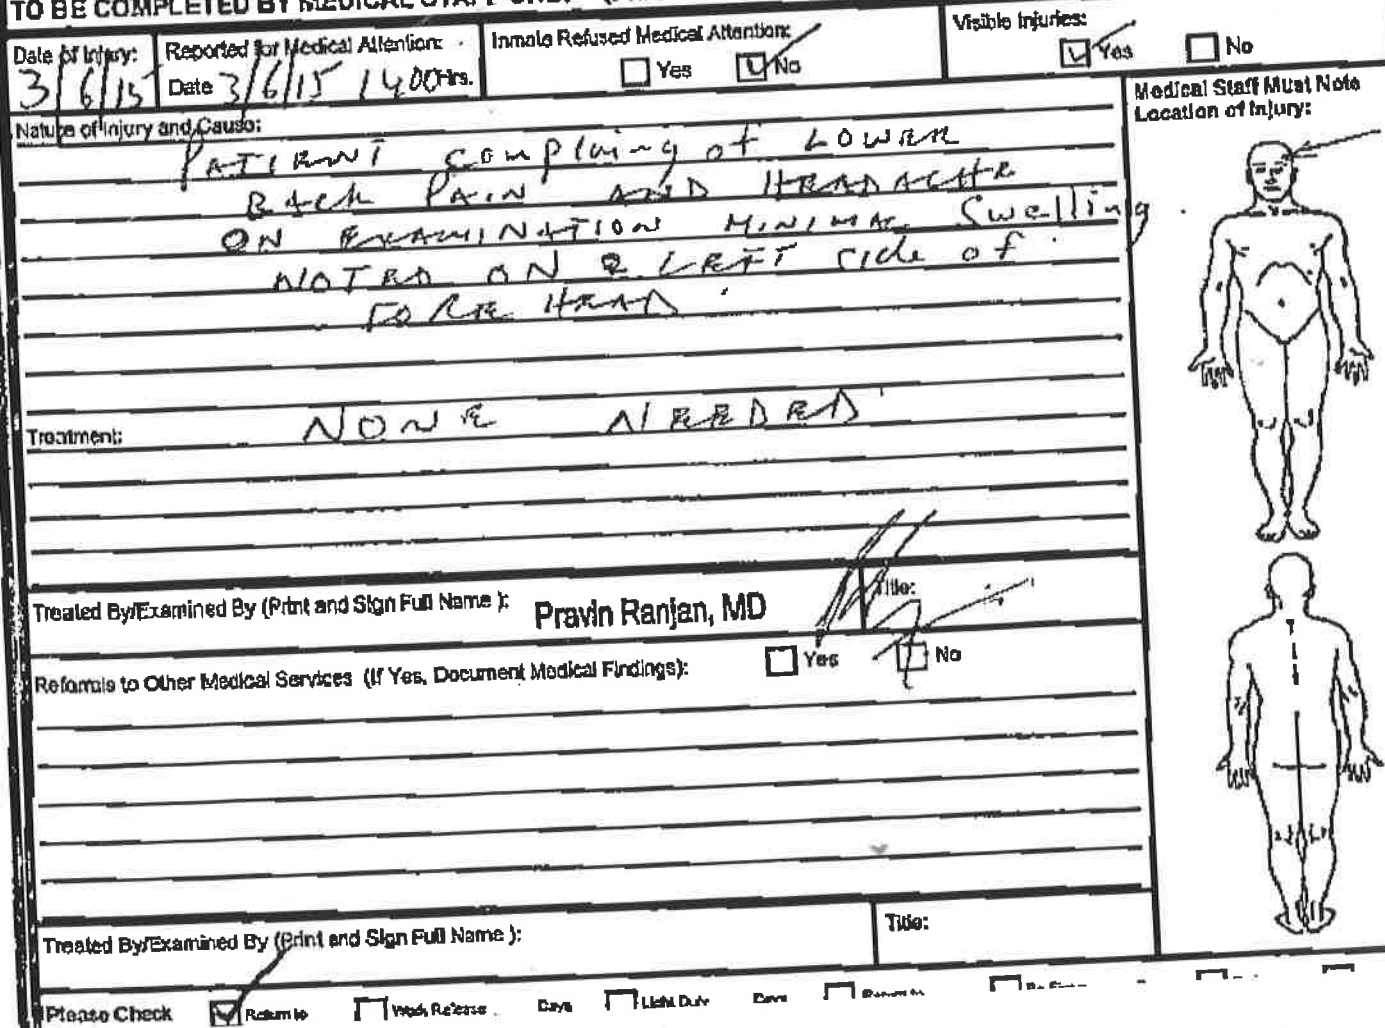 TO BE COMPLETED BY MEDICAL STAFF
Date of Injury:
3/6/15
Reported for Medical Attention:
Date 3/6/15 1400Hrs.
Inmate Refused Medical Attention:
Yes No
Visible Injuries:
Yes No
Medical Staff Must Note
Location of Injury:
Nature of Injury and Cause:
PATIENT complaing of LOWER
Back PAIN AND HEADACHE
ON EXAMINATION MINIMAL Swelling
NOTED ON LEFT side of
FOREHEAD
Treatment: NONE NEEDED
Treated By/Examined By (Print and Sign Full Name ): Pravin Ranjan, MD
Title:
Referrals to Other Medical Services (If Yes, Document Medical Findings): Yes No
Treated By/Examined By (Print and Sign Full Name ):
Title:
Please Check Return to Work Release Days Light Duty Days